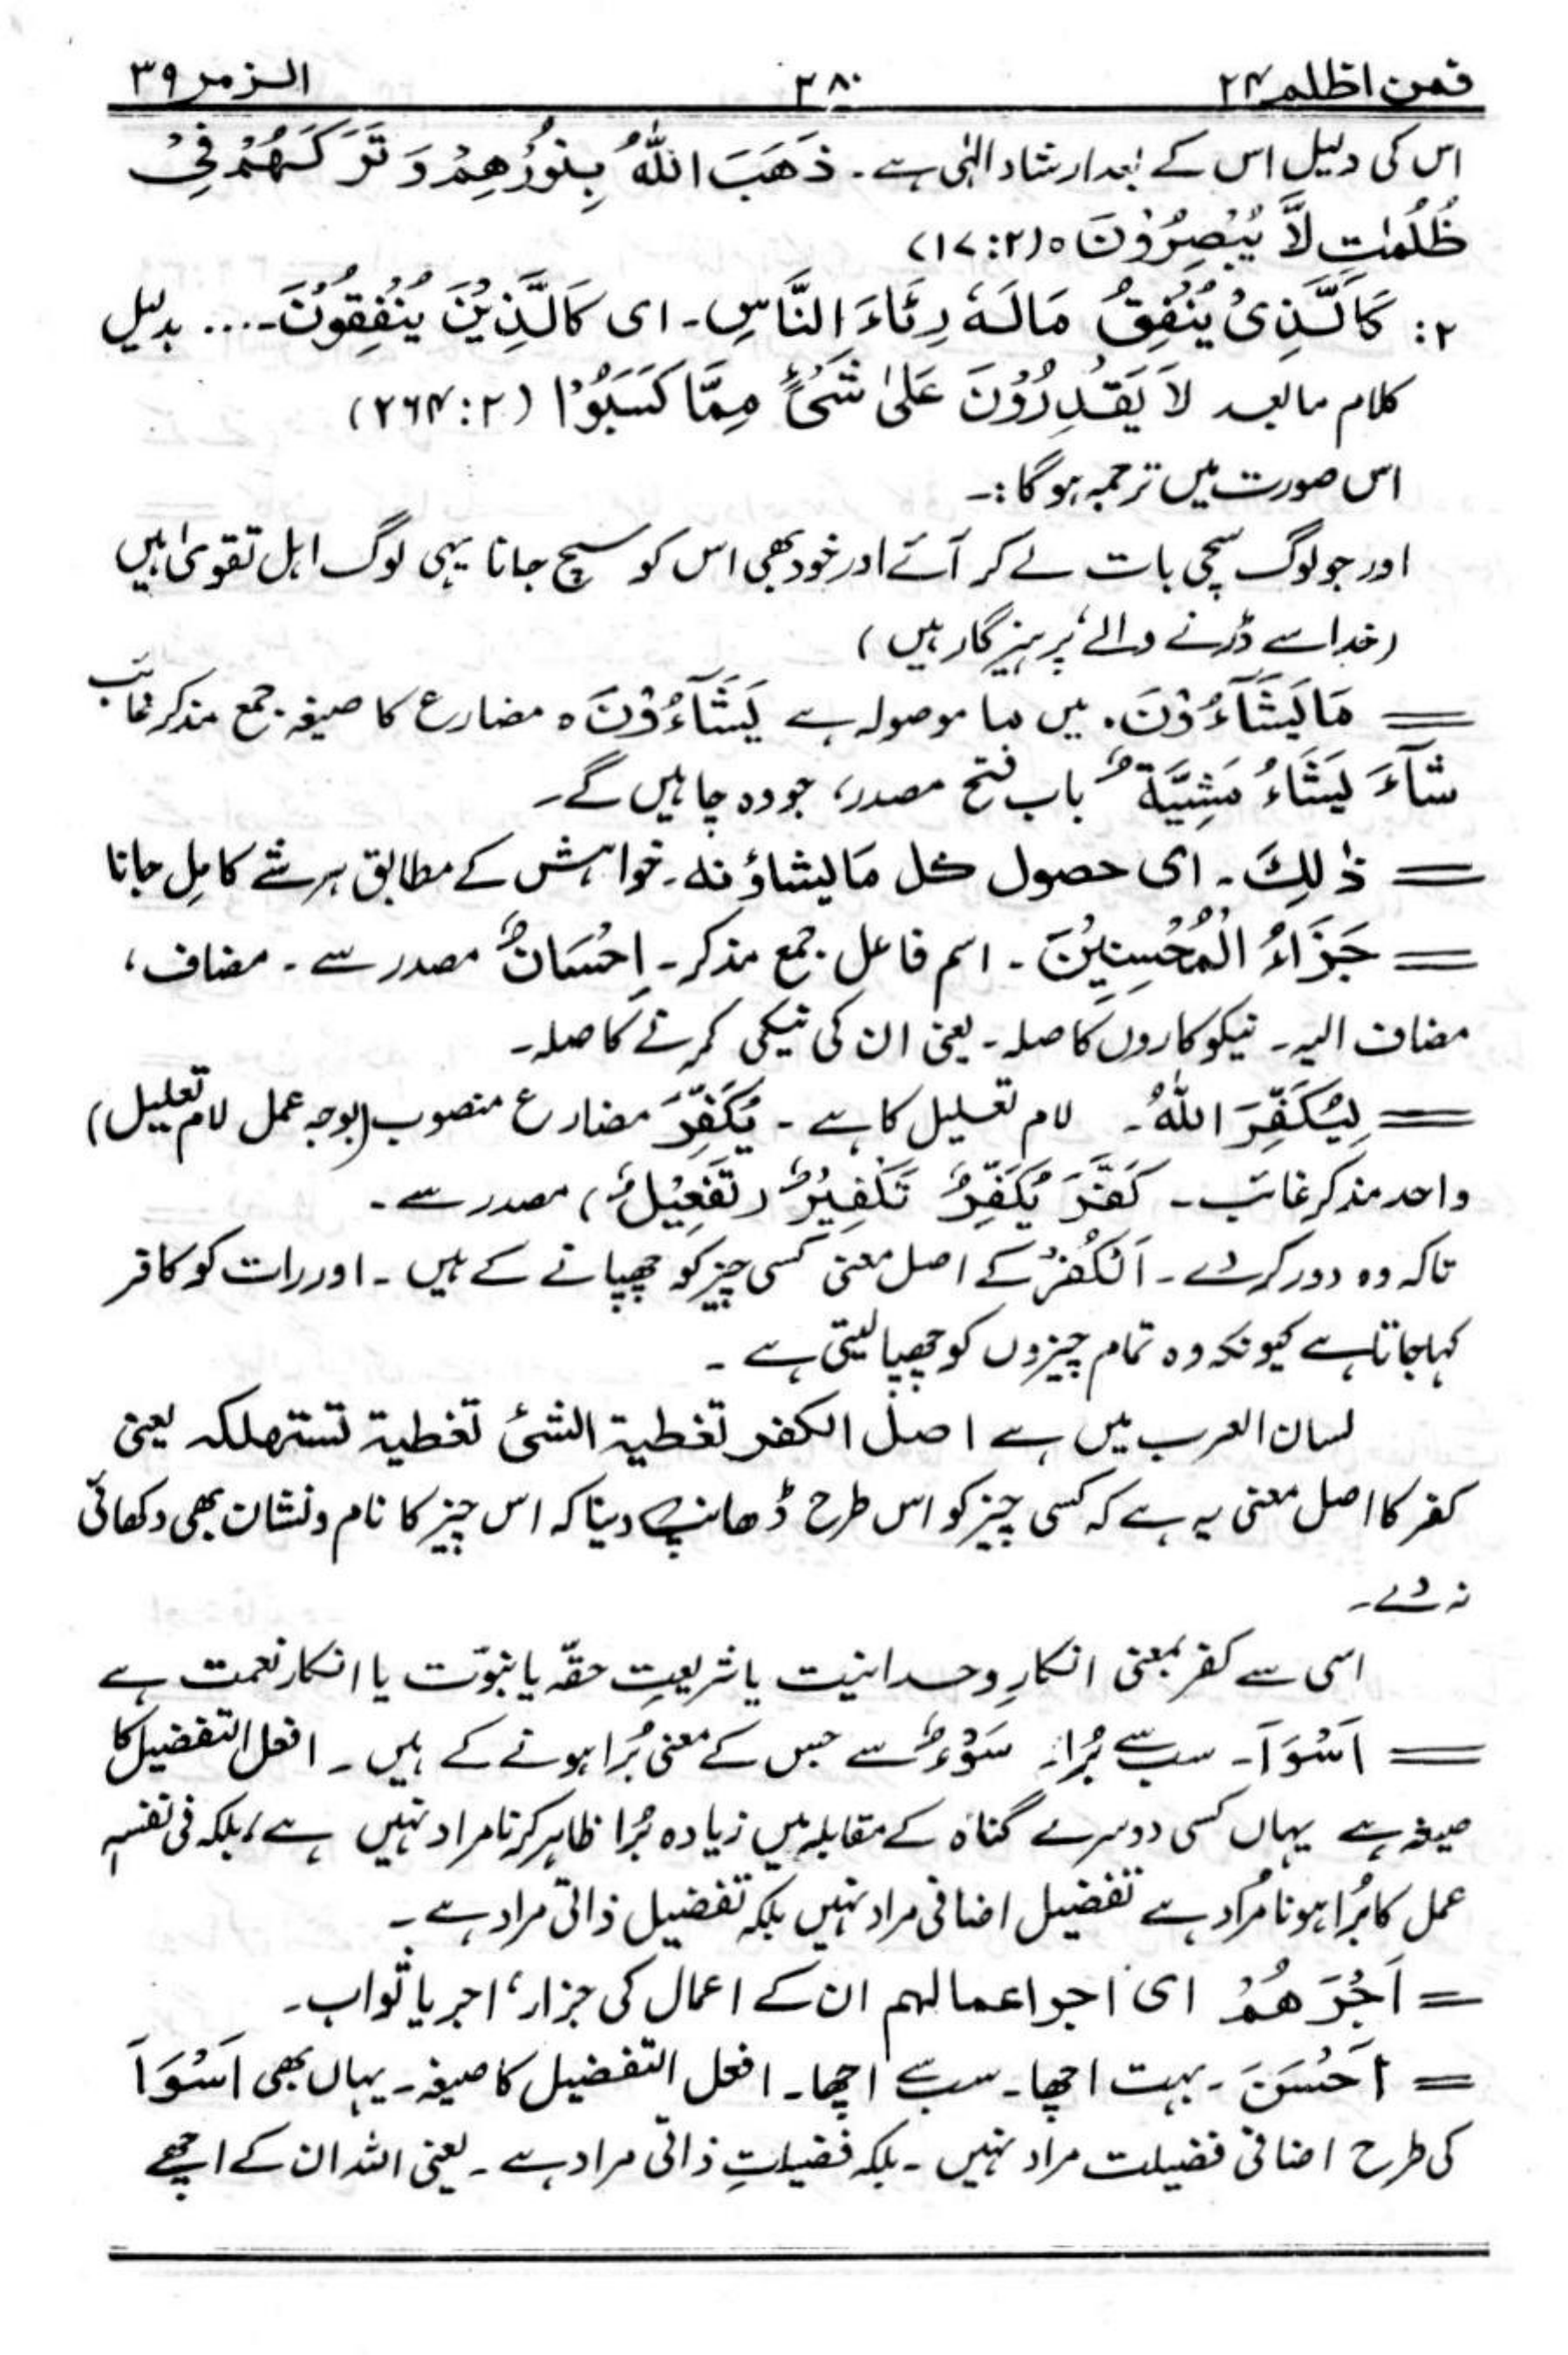 فمن اظلم ۲۴
۳۸۰
الزمر ۳۹
اس کی دلیل اس کے بعد ارشاد الٰہی ہے۔ ذَهَبَ اللّٰهُ بِنُوْرِهِمْ وَ تَرَكَهُمْ فِىْ
ظُلُمٰتٍ لَّا يُبْصِرُوْنَ ه (۱۷:۲)
۲: كَالَّذِىْ يُنْفِقُ مَالَهٗ رِئَاءَ النَّاسِ۔ ای كَالَّذِيْنَ يُنْفِقُوْنَ۔... بدلیل
کلام مابعد لَا يَقْدِرُوْنَ عَلىٰ شَىْءٍ مِمَّا كَسَبُوْا (۲۶۴:۲)
اس صورت میں ترجمہ ہوگا:۔
اور جو لوگ سچی بات لے کر آئے اور خود بھی اس کو سچ جانا یہی لوگ اہل تقویٰ ہیں
(خدا سے ڈرنے والے، پرہیزگار ہیں)
= مَا يَشَآءُوْنَ۔ میں ما موصولہ ہے يَشَآءُوْنَ ه مضارع کا صیغہ جمع مذکر غائب
شَآءَ يَشَآءُ مَشِيَّةٌ باب فتح مصدر، جو وہ چاہیں گے۔
= ذٰلِكَ۔ ای حصول كل مَا يشاؤنه۔ خواہش کے مطابق ہر شے کا مل جانا
= جَزَاءُ الْمُحْسِنِيْنَ۔ اسم فاعل جمع مذکر۔ اِحْسَانٌ مصدر سے۔ مضاف،
مضاف الیہ۔ نیکوکاروں کا صلہ۔ یعنی ان کی نیکی کرنے کا صلہ۔
= لِيُكَفِّرَ اللّٰهُ۔ لام تعلیل کا ہے۔ يُكَفِّرَ مضارع منصوب (بوجہ عمل لام تعلیل)
واحد مذکر غائب۔ كَفَّرَ يُكَفِّرُ تَكْفِيْرٌ (تَفْعِيْلٌ) مصدر سے۔
تاکہ وہ دور کر دے۔ اَلْكُفْرُ کے اصل معنی کسی چیز کو چھپانے کے ہیں۔ اور رات کو کافر
کہا جاتا ہے کیونکہ وہ تمام چیزوں کو چھپا لیتی ہے۔
لسان العرب میں ہے اصل الكفر تغطية الشئ تغطية تستهلكه یعنی
کفر کا اصل معنی یہ ہے کہ کسی چیز کو اس طرح ڈھانپ دینا کہ اس چیز کا نام و نشان بھی دکھائی
نہ دے۔
اسی سے کفر بمعنی انکارِ وحدانیت یا شریعتِ حقّہ یا نبوّت یا انکار نعمت ہے
= اَسْوَاَ۔ سب سے بُرا۔ سَوْءٌ سے جس کے معنی بُرا ہونے کے ہیں۔ افعل التفضیل کا
صیغہ ہے یہاں کسی دوسرے گناہ کے مقابلہ میں زیادہ بُرا ظاہر کرنا مراد نہیں ہے، بلکہ فی نفسہٖ
عمل کا بُرا ہونا مُراد ہے تفضیل اضافی مراد نہیں بلکہ تفضیل ذاتی مراد ہے۔
= اَجْرَهُمْ ای اجر اعمالہم ان کے اعمال کی جزاء، اجر یا ثواب۔
= اَحْسَنَ۔ بہت اچھا۔ سب سے اچھا۔ افعل التفضیل کا صیغہ۔ یہاں بھی اَسْوَاَ
کی طرح اضافی فضیلت مراد نہیں۔ بلکہ فضیلتِ ذاتی مراد ہے۔ یعنی اللہ ان کے اچھے